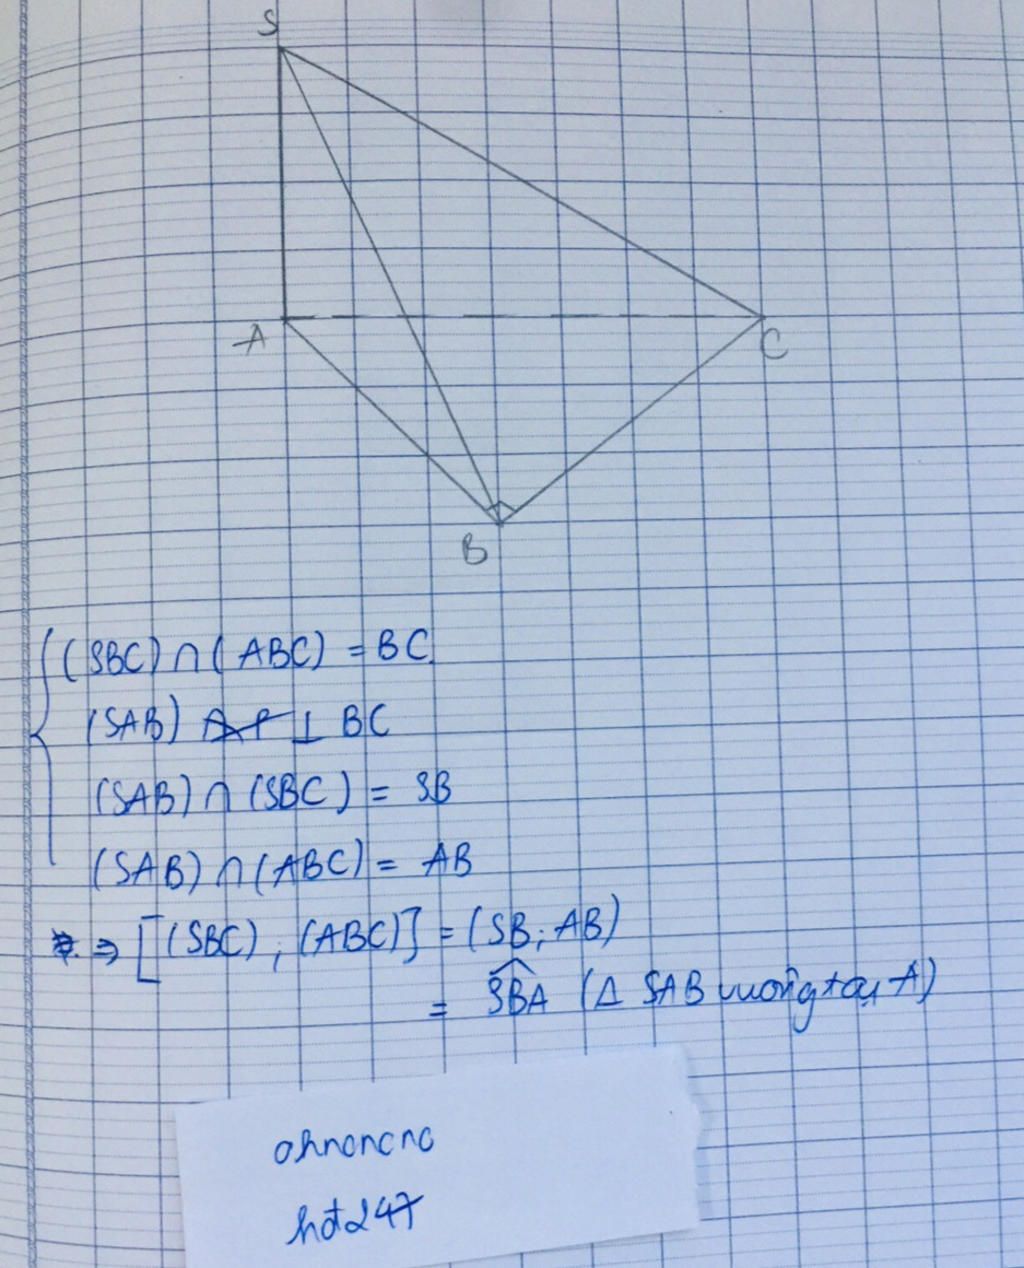 S
A
C
B
(SBC) ∩ (ABC) = BC
(SAB) ⊥ BC
(SAB) ∩ (SBC) = SB
(SAB) ∩ (ABC) = AB
⇒ [(SBC) ; (ABC)] = (SB ; AB)
= \widehat{SBA} (Δ SAB vuông tại A)
ohncncnc
hot247